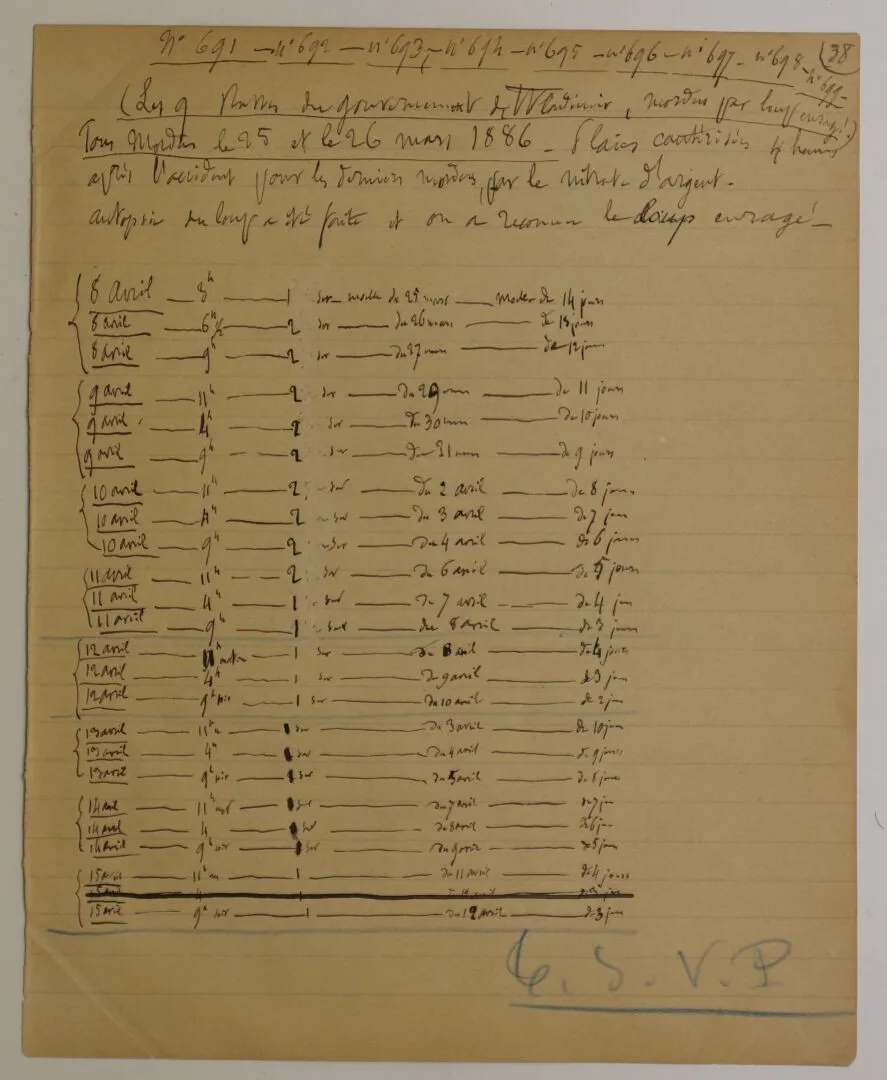 N° 691 – n° 692 – n° 693 – n° 694 – n° 695 – n° 696 – n° 697 – n° 698 – n° 699 – 38
(Les 9 Russes du gouvernement de Wladimir, mordus par loup enragé!)
Tous Mordus le 25 et le 26 mars 1886 – Plaies cautérisées 4 heures
après l'accident pour les derniers mordus, par le nitrate d'argent –
autopsie du loup a été faite et on a reconnu le loup enragé –
8 avril — 3h — 1 sur moelle du 25 mars — moelle de 14 jours
8 avril — 6h 1/2 — 2 sur — du 26 mars — de 13 jours
8 avril — 9h — 2 sur — du 27 mars — de 12 jours
9 avril — 11h — 2 sur — du 29 mars — de 11 jours
9 avril — 4h — 2 sur — du 30 mars — de 10 jours
9 avril — 9h — 2 sur — du 31 mars — de 9 jours
10 avril — 11h — 2 sur — du 2 avril — de 8 jours
10 avril — 4h — 2 sur — du 3 avril — de 7 jours
10 avril — 9h — 2 sur — du 4 avril — de 6 jours
11 avril — 11h — 2 sur — du 6 avril — de 5 jours
11 avril — 4h — 1 sur — du 7 avril — de 4 jours
11 avril — 9h — 1 sur — du 8 avril — de 3 jours
12 avril — 11h matin — 1 sur — du 8 avril — de 4 jours
12 avril — 4h — 1 sur — du 9 avril — de 3 jours
12 avril — 9h soir — 1 sur — du 10 avril — de 2 jours
13 avril — 11h m — 1 sur — du 3 avril — de 10 jours
13 avril — 4h — 1 sur — du 4 avril — de 9 jours
13 avril — 9h soir — 1 sur — du 5 avril — de 8 jours
14 avril — 11h mat — 1 sur — du 7 avril — de 7 jours
14 avril — 4 — 1 sur — du 8 avril — de 6 jours
14 avril — 9h soir — 1 sur — du 9 avril — de 5 jours
15 avril — 11h m — 1 — du 11 avril — de 4 jours
15 avril — 4 — 1
15 avril — 9h soir — 1 — du 12 avril — de 3 jours
T. S. V. P